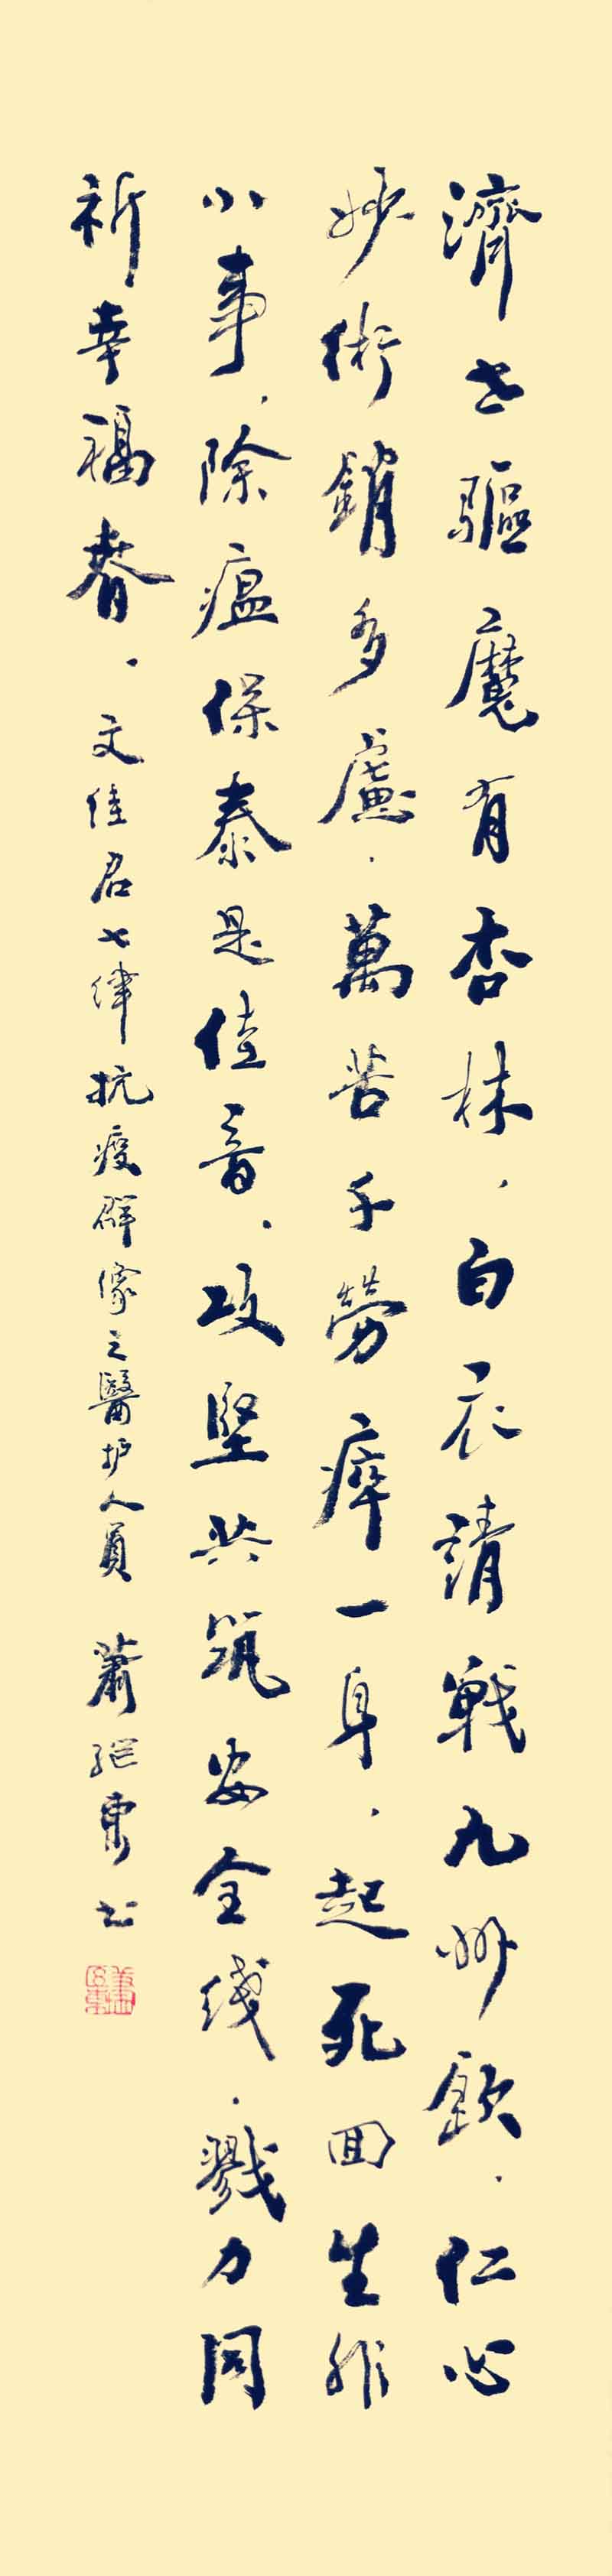 濟世驅魔有杏林，白衣請戰九州欽，仁心
妙術銷多慮，萬苦千勞瘁一身，起死回生非
小事，除瘟保泰是佳音，攻堅共筑安全线，戮力同
祈幸福春。文佳君七律抗疫群像之醫护人員 蕭继東书